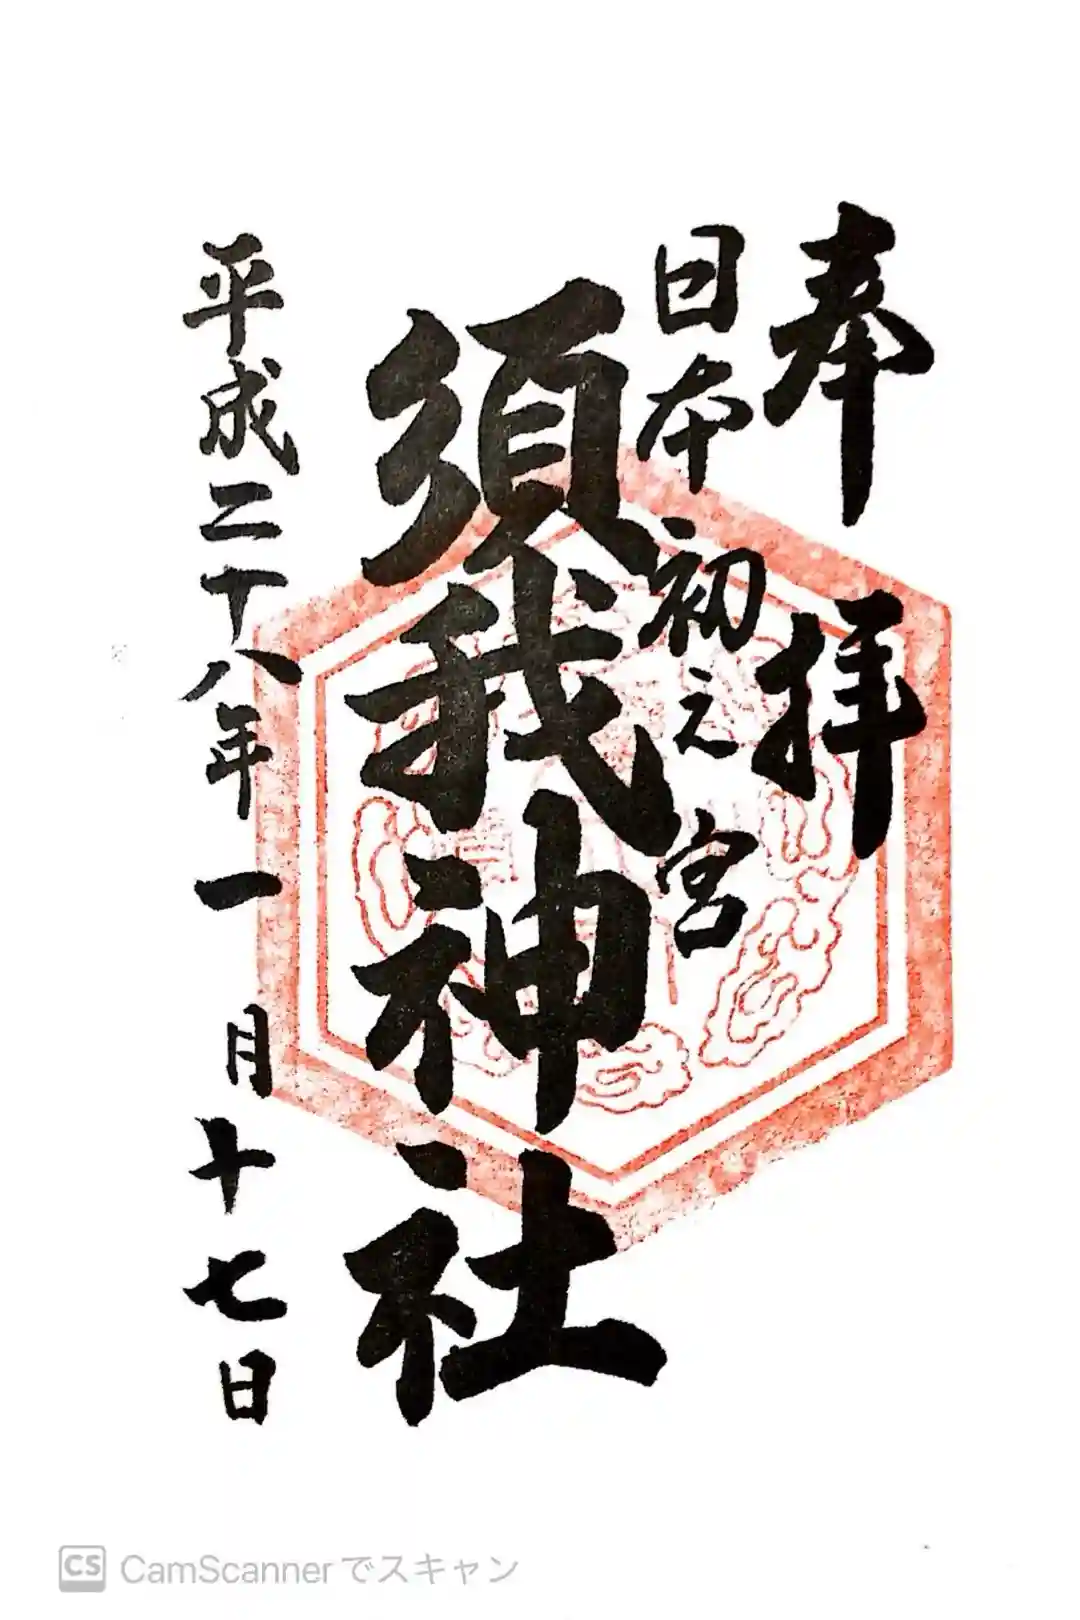 奉拝
日本初之宮
須我神社
平成二十八年一月十七日
CS CamScannerでスキャン